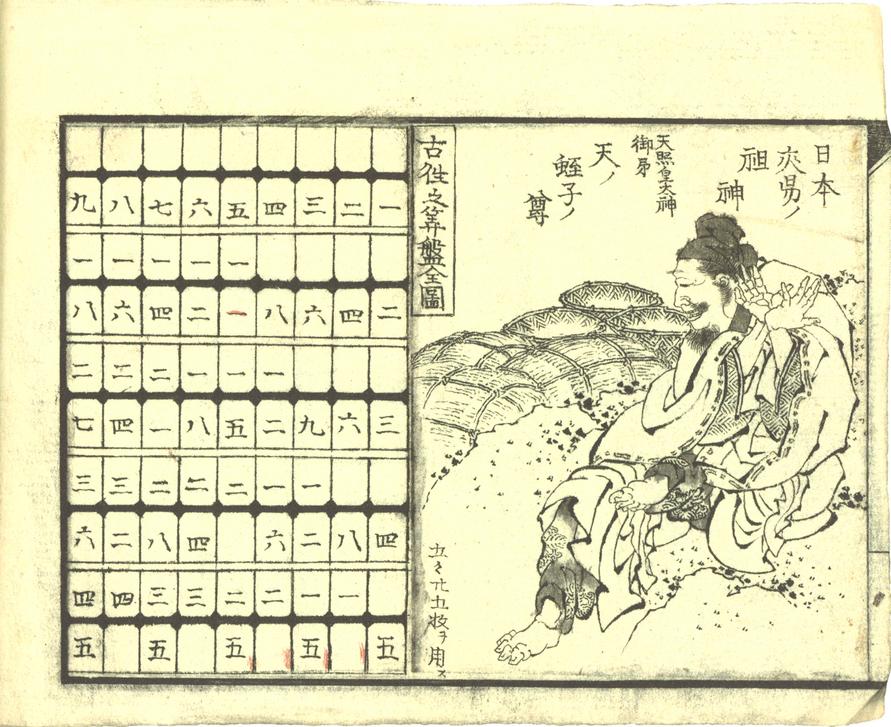 日本
交昜ノ
祖神
天照皇太神
御弟
天ノ
蛭子ノ
尊
五〻廿五枚ヲ用ス
古徃之筭盤全圖
一 二 三 四 五 六 七 八 九
一 一 一 一 一
二 四 六 八 一 二 四 六 八
一 一 一 二 二 二
三 六 九 二 五 八 一 四 七
一 一 二 二 二 三 三
四 八 二 六 四 八 二 六
一 一 二 二 三 三 四 四
五 五 五 五 五